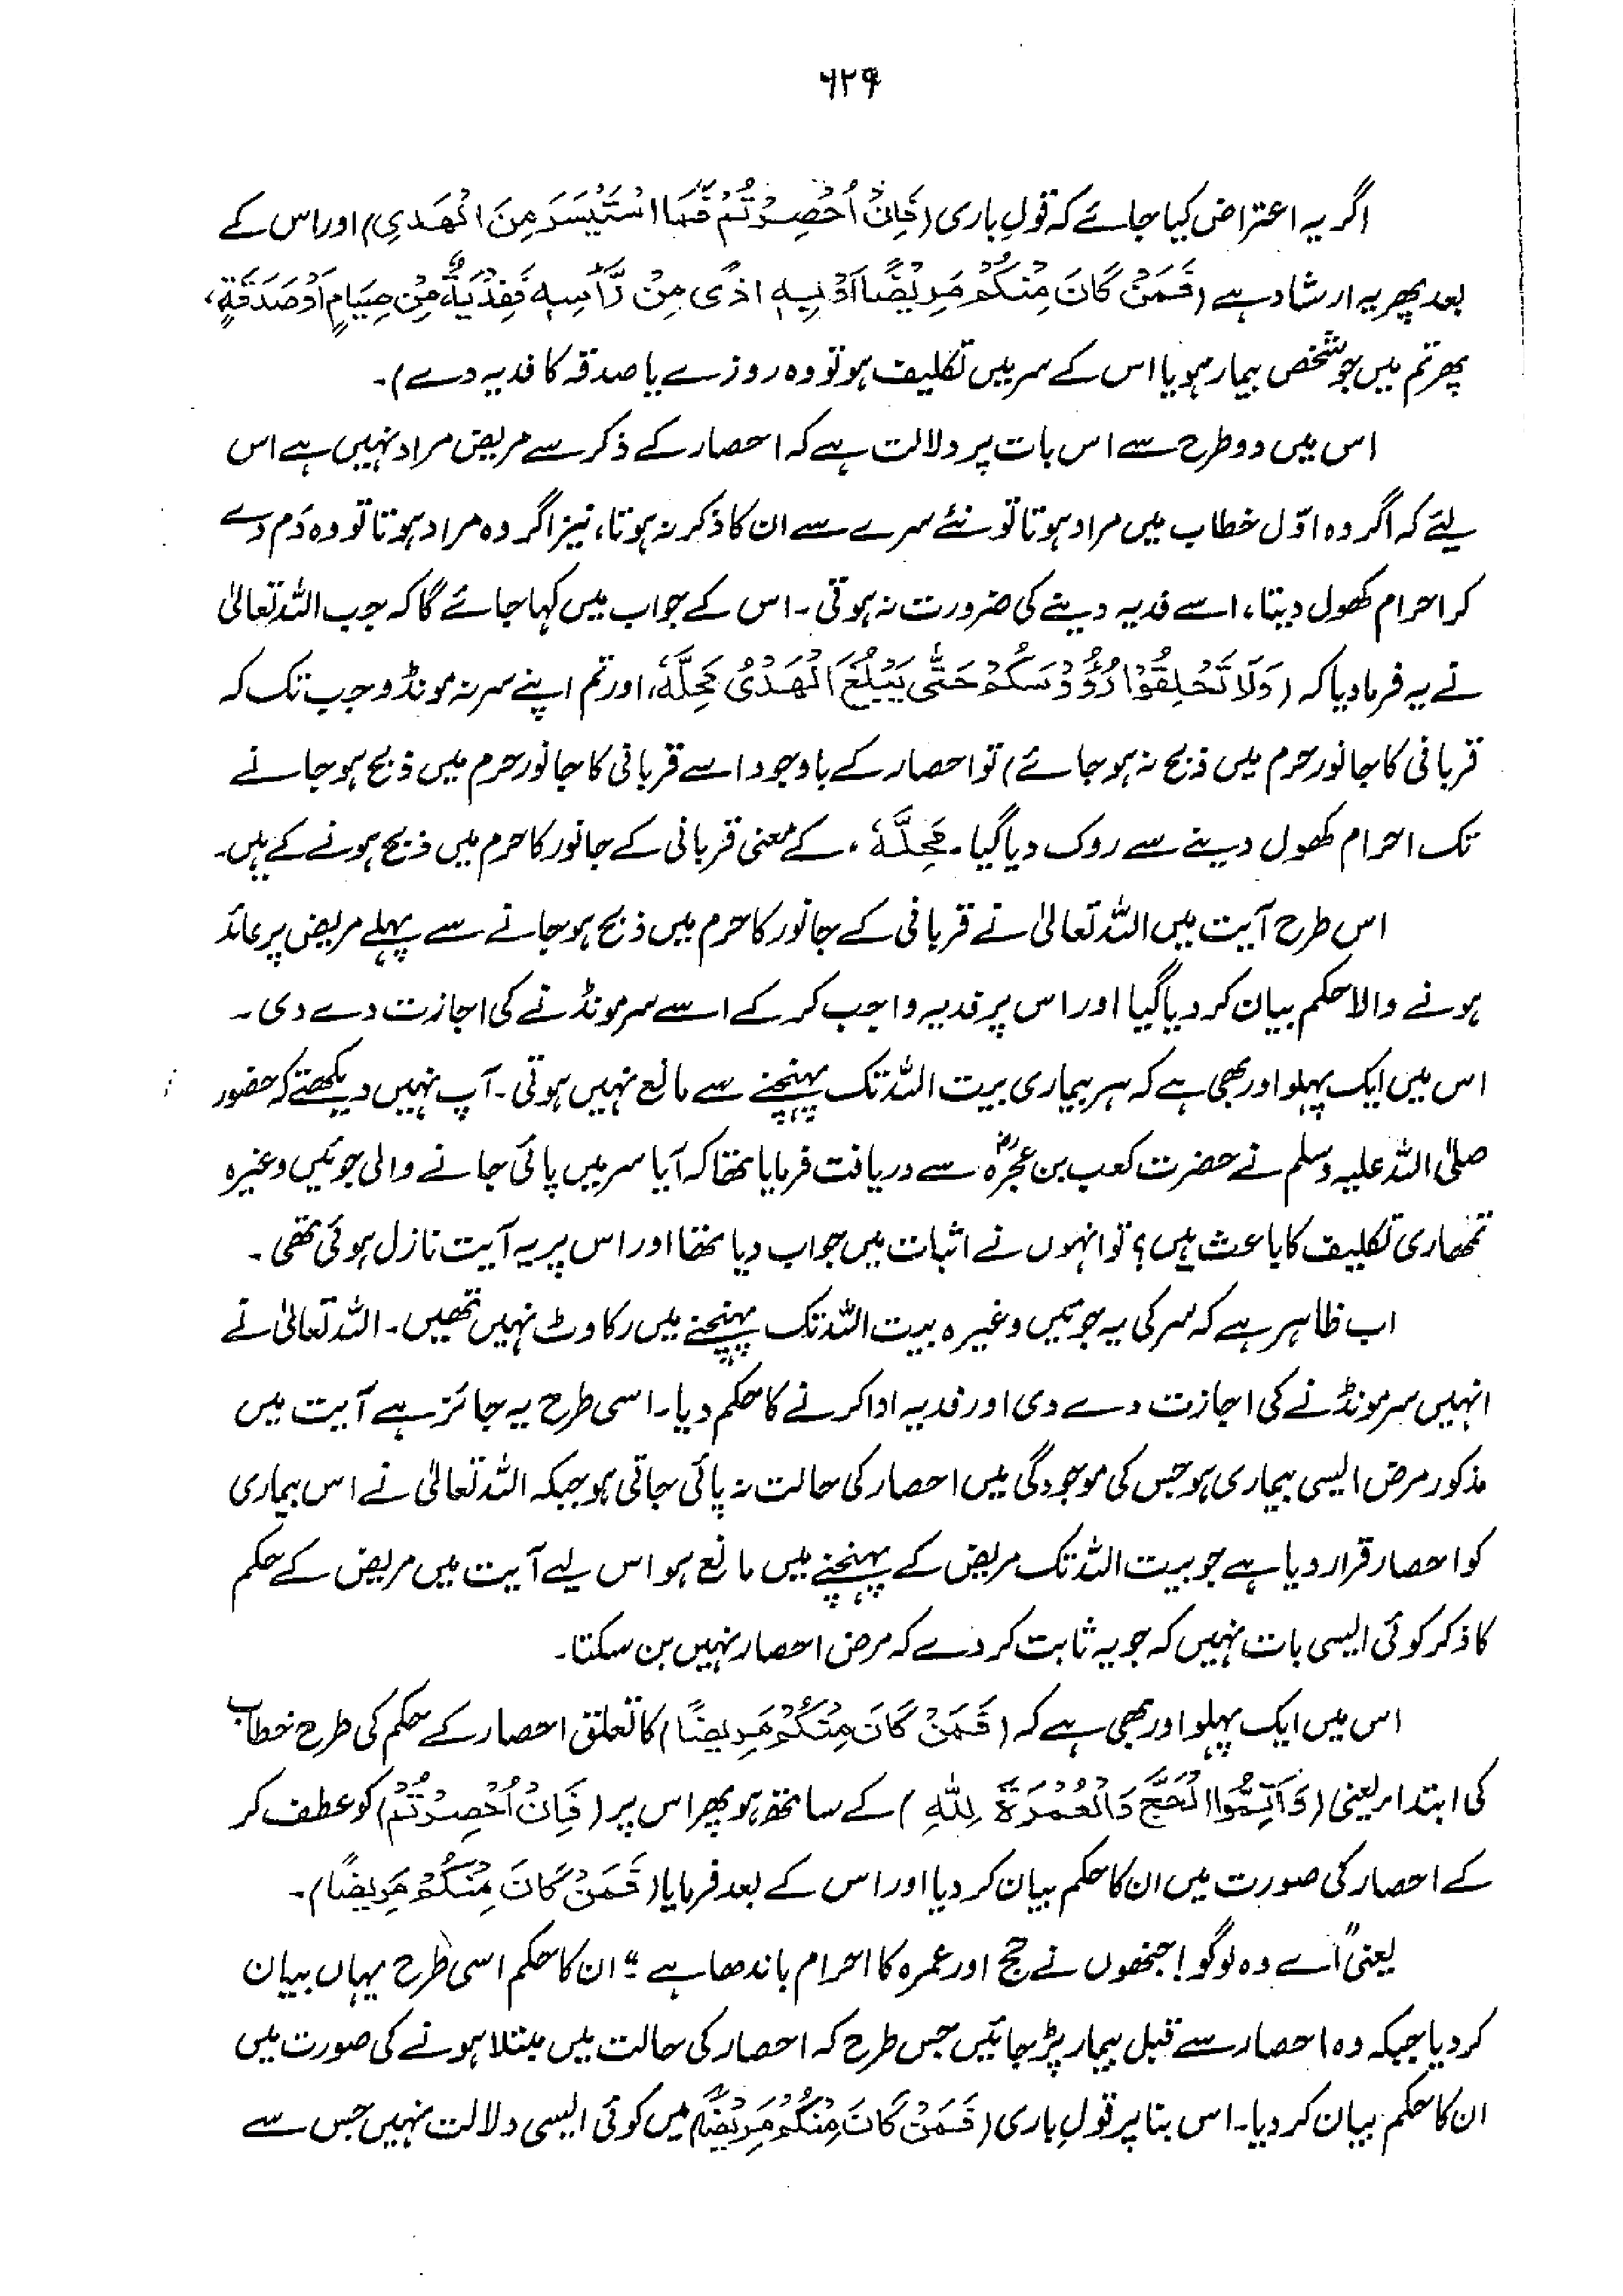 ۶۲۹
اگر یہ اعتراض کیا جائے کہ قولِ باری (فَاِنْ اُحْصِرْتُمْ فَمَا اسْتَیْسَرَ مِنَ الْھَدیِ) اور اس کے
بعد پھر یہ ارشاد ہے (فَمَنْ کَانَ مِنْکُمْ مَرِیْضًا اَوْ بِہٖ اَذًی مِنْ رَّاْسِہٖ فَفِدْیَۃٌ مِّنْ صِیَامٍ اَوْ صَدَقَۃٍ،
پھر تم میں جو شخص بیمار ہو یا اس کے سر میں تکلیف ہو تو وہ روزے یا صدقہ کا فدیہ دے)۔
اس میں دو طرح سے اس بات پر دلالت ہے کہ احصار کے ذکر سے مریض مراد نہیں ہے اس
لئے کہ اگر وہ اوّل خطاب میں مراد ہوتا تو نئے سرے سے ان کا ذکر نہ ہوتا، نیز اگر وہ مراد ہوتا تو وہ دَم دے
کر احرام کھول دیتا، اسے فدیہ دینے کی ضرورت نہ ہوتی۔ اس کے جواب میں کہا جائے گا کہ جب اللہ تعالیٰ
نے یہ فرما دیا کہ (وَلَا تَحْلِقُوْا رُؤُوْسَکُمْ حَتّٰی یَبْلُغَ الْھَدْیُ مَحِلَّہٗ، اور تم اپنے سر نہ مونڈو جب تک کہ
قربانی کا جانور حرم میں ذبح نہ ہو جائے) تو احصار کے باوجود اسے قربانی کا جانور حرم میں ذبح ہو جانے
تک احرام کھول دینے سے روک دیا گیا۔ مَحِلَّہٗ، کے معنی قربانی کے جانور کا حرم میں ذبح ہونے کے ہیں۔
اس طرح آیت میں اللہ تعالیٰ نے قربانی کے جانور کا حرم میں ذبح ہو جانے سے پہلے مریض پر عائد
ہونے والا حکم بیان کر دیا گیا اور اس پر فدیہ واجب کر کے اسے سر مونڈنے کی اجازت دے دی۔
اس میں ایک پہلو اور بھی ہے کہ ہر بیماری بیت اللہ تک پہنچنے سے مانع نہیں ہوتی۔ آپ نہیں دیکھتے کہ حضور
صلی اللہ علیہ وسلم نے حضرت کعب بن عجرہؓ سے دریافت فرمایا تھا کہ آیا سر میں پائی جانے والی جوئیں وغیرہ
تمھاری تکلیف کا باعث ہیں؟ تو انہوں نے اثبات میں جواب دیا تھا اور اس پر یہ آیت نازل ہوئی تھی۔
اب ظاہر ہے کہ سر کی یہ جوئیں وغیرہ بیت اللہ تک پہنچنے میں رکاوٹ نہیں تھیں۔ اللہ تعالیٰ نے
انہیں سر مونڈنے کی اجازت دے دی اور فدیہ ادا کرنے کا حکم دیا۔ اسی طرح یہ جائز ہے آیت میں
مذکور مرض ایسی بیماری ہو جس کی موجودگی میں احصار کی حالت نہ پائی جاتی ہو جبکہ اللہ تعالیٰ نے اس بیماری
کو احصار قرار دیا ہے جو بیت اللہ تک مریض کے پہنچنے میں مانع ہو اس لیے آیت میں مریض کے حکم
کا ذکر کوئی ایسی بات نہیں کہ جو یہ ثابت کر دے کہ مرض احصار نہیں بن سکتا۔
اس میں ایک پہلو اور بھی ہے کہ (فَمَنْ کَانَ مِنْکُمْ مَرِیضًا) کا تعلق احصار کے حکم کی طرح خطاب
کی ابتداء یعنی (وَاَتِمُّوا الْحَجَّ وَالْعُمْرَۃَ لِلّٰہِ) کے ساتھ ہو پھر اس پر (فَاِنْ اُحْصِرْتُمْ) کو عطف کر
کے احصار کی صورت میں ان کا حکم بیان کر دیا اور اس کے بعد فرمایا (فَمَنْ کَانَ مِنْکُمْ مَرِیضًا)۔
یعنی "اے وہ لوگو! جنھوں نے حج اور عمرہ کا احرام باندھا ہے" ان کا حکم اسی طرح یہاں بیان
کر دیا جبکہ وہ احصار سے قبل بیمار پڑ جائیں جس طرح کہ احصار کی حالت میں مبتلا ہونے کی صورت میں
ان کا حکم بیان کر دیا۔ اس بنا پر قولِ باری (فَمَنْ کَانَ مِنْکُمْ مَرِیْضًا) میں کوئی ایسی دلالت نہیں جس سے